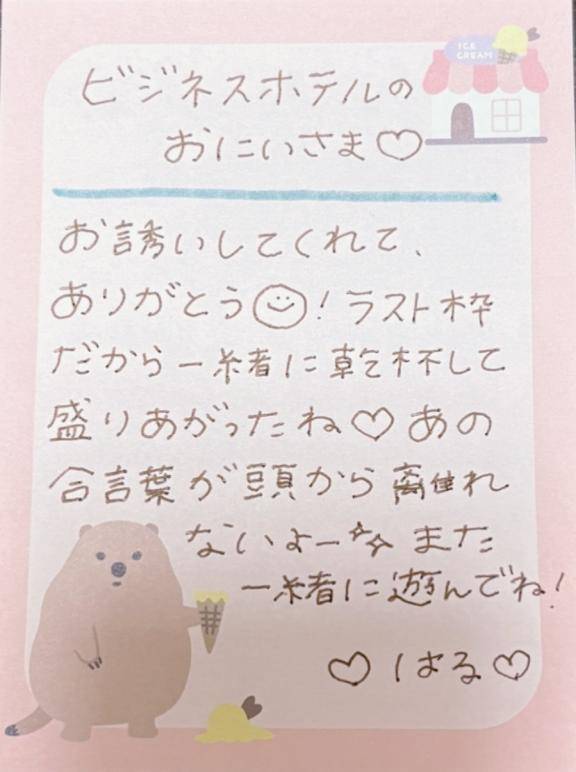 ICE
CREAM
ビジネスホテルの
おにいさま♡
お誘いしてくれて、
ありがとう☺!ラスト枠
だから一緒に乾杯して
盛りあがったね♡あの
合言葉が頭から離れ
ないよー✨また
一緒に遊んでね!
♡はる♡